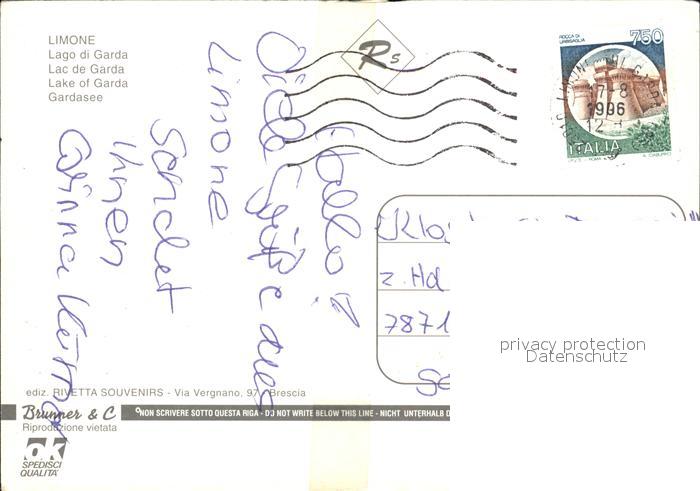 LIMONE
Lago di Garda
Lac de Garda
Lake of Garda
Gardasee
Rs
ROCCA DI URBISAGLIA
750
17-8
1996
12
ITALIA
Hallo!
Viele Grüße aus
Limone
sendet
Ihnen
Corinna
z. Hd
7871
privacy protection
Datenschutz
ediz. RIVETTA SOUVENIRS - Via Vergnano, 97 - Brescia
Brunner & C
NON SCRIVERE SOTTO QUESTA RIGA - DO NOT WRITE BELOW THIS LINE - NICHT UNTERHALB D
Riproduzione vietata
ok
SPEDISCI
QUALITA'